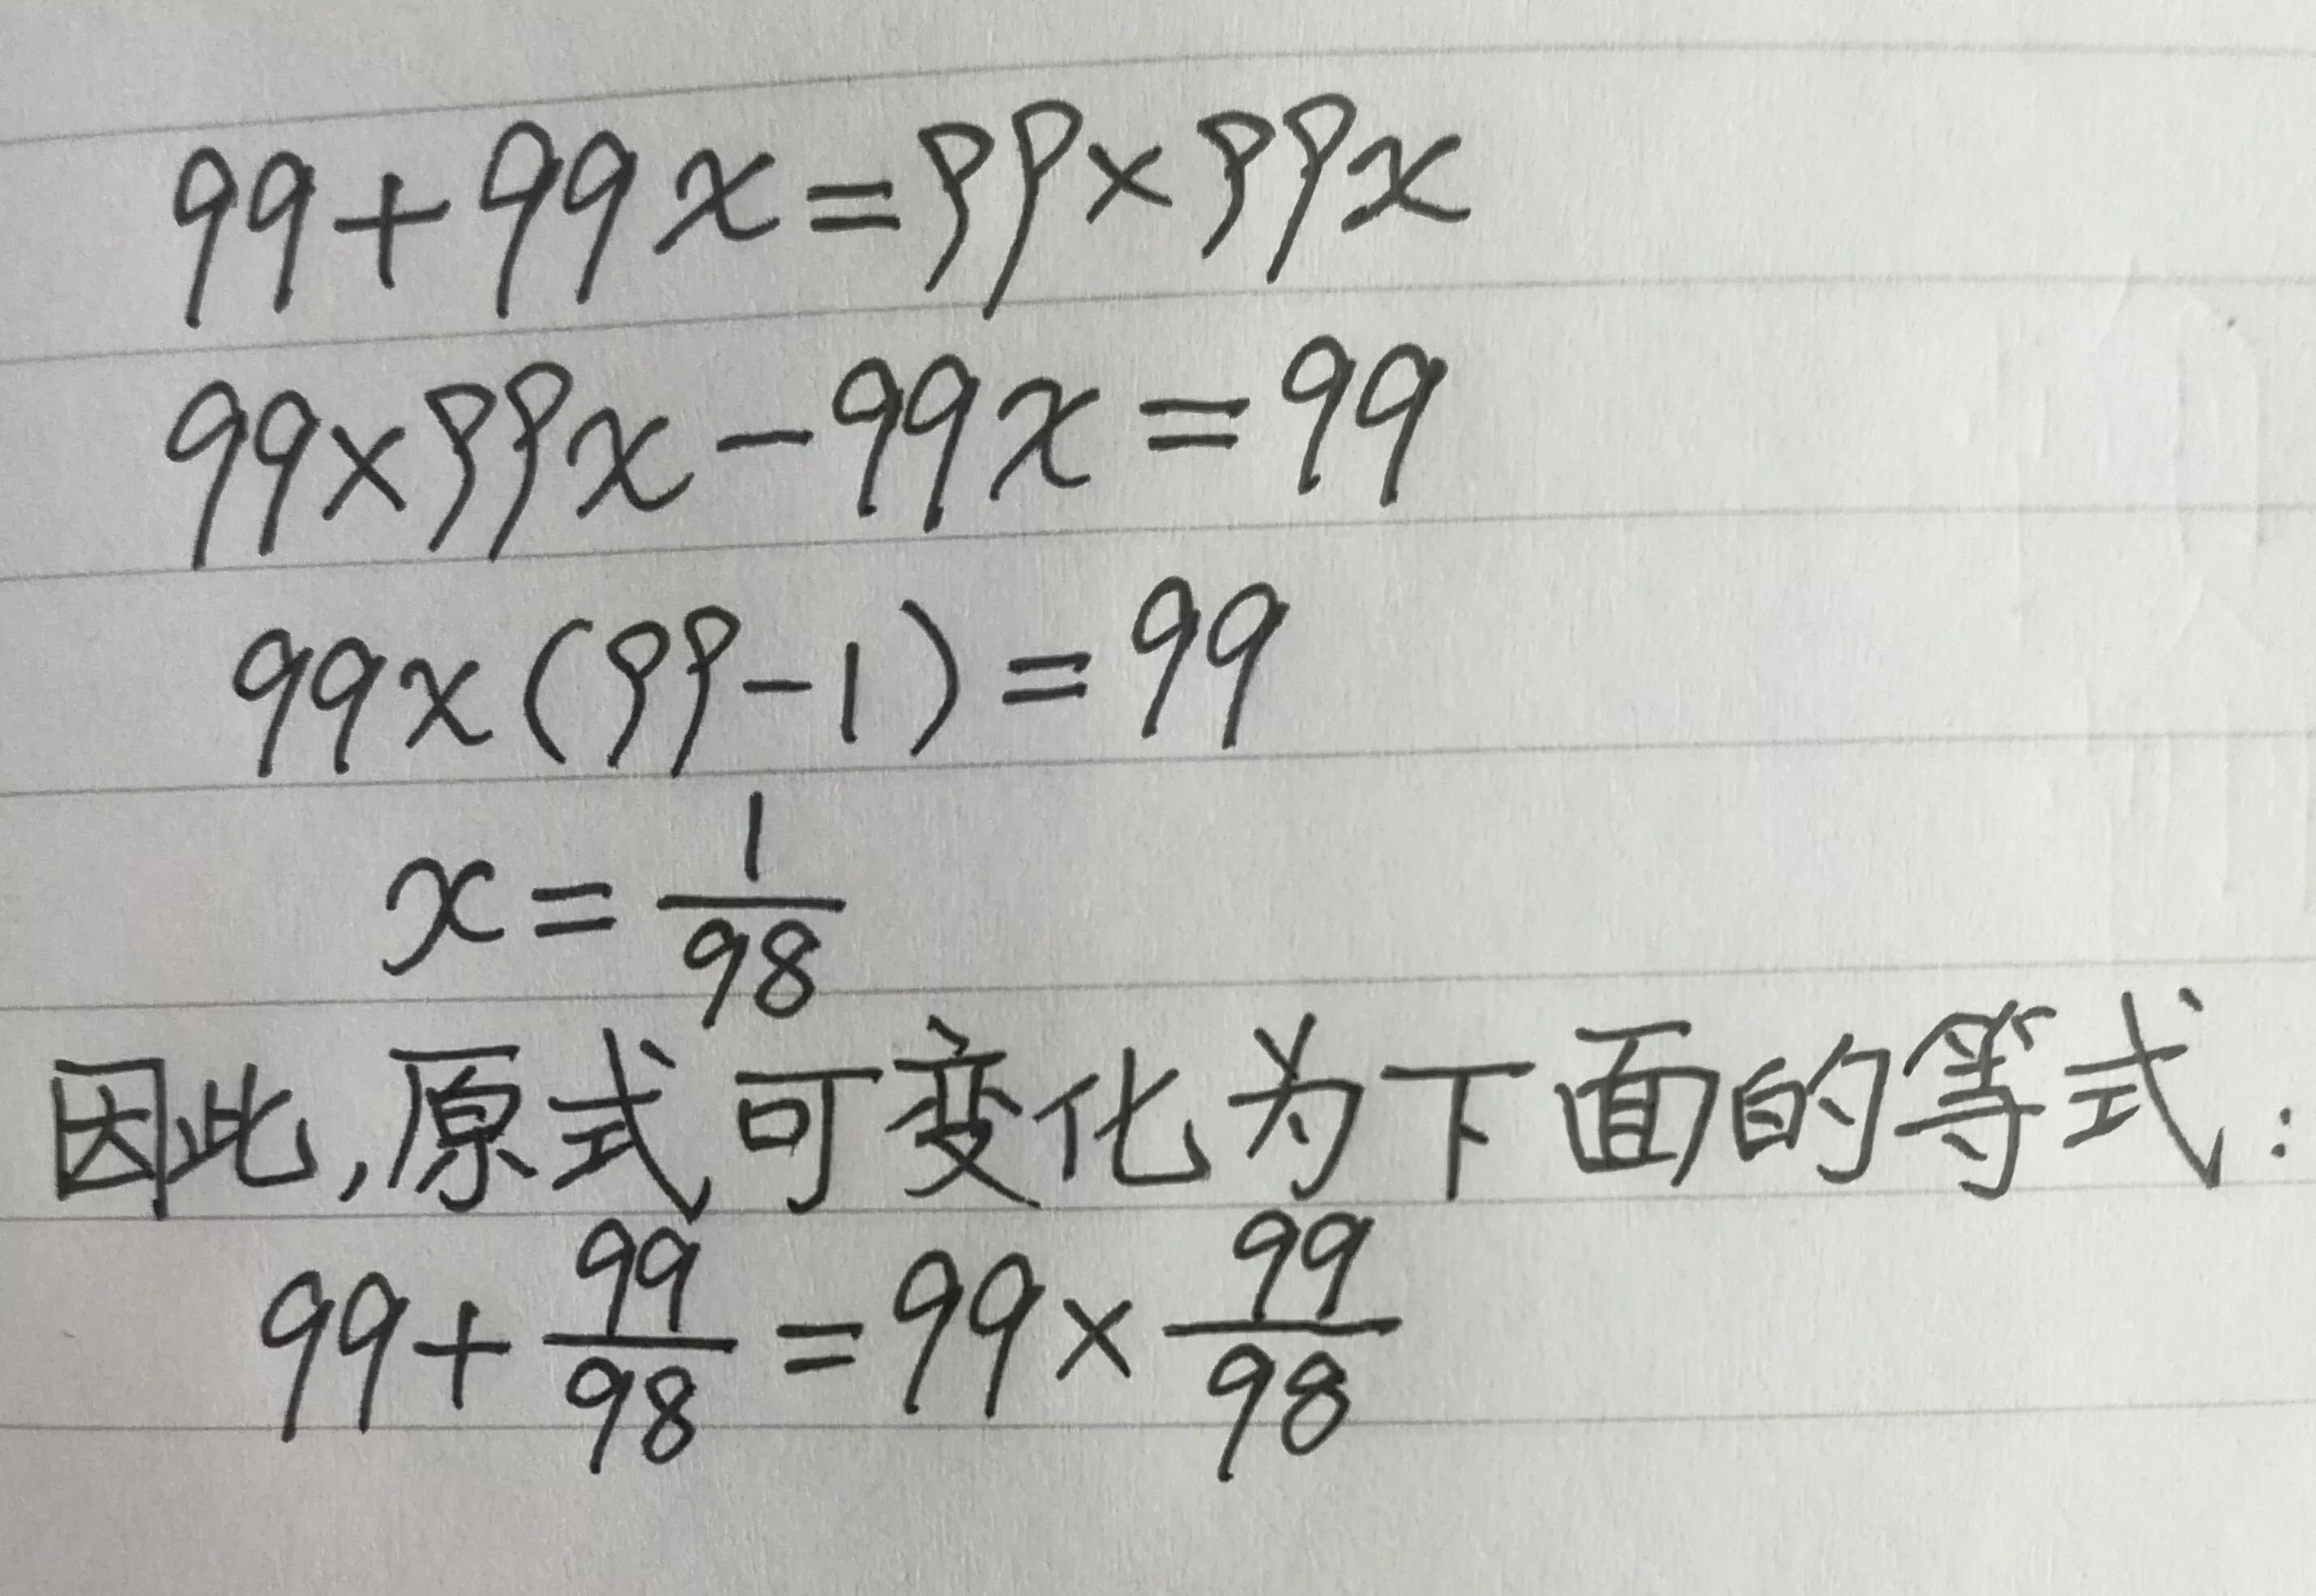 99+99x=99×99x
99×99x-99x=99
99x(99-1)=99
x=1/98
因此,原式可变化为下面的等式:
99+99/98=99×99/98